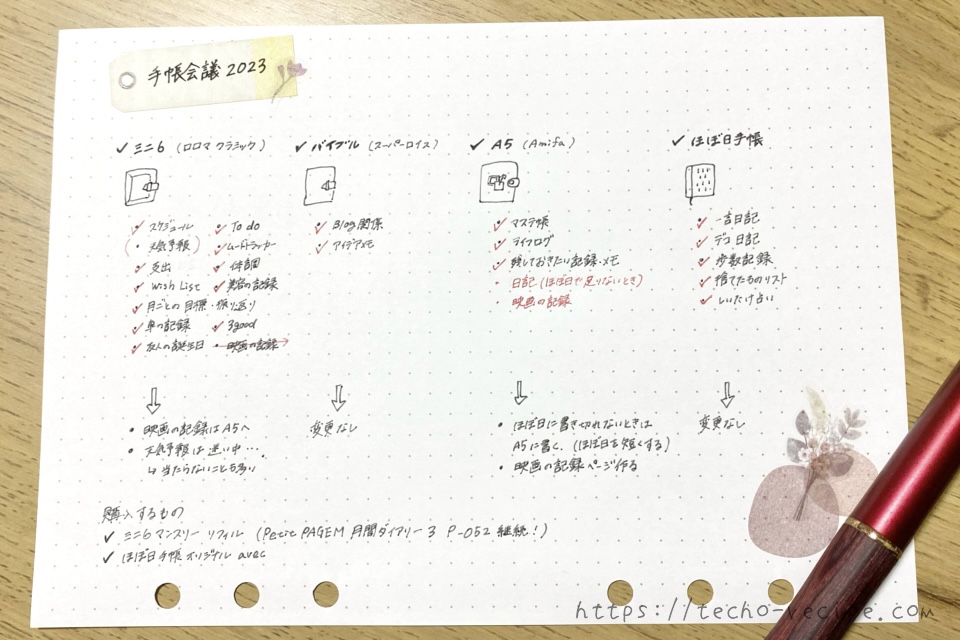 手帳会議 2023
✓ ミニ6 (ロロマ クラシック)
スケジュール
(・天気予報)
支出
Wish List
月ごとの目標・振り返り
車の記録
友人の誕生日
To do
ムードトラッカー
体調
美容の記録
3good
映画の記録→
⇩
・映画の記録はA5へ
・天気予報は迷い中…
↳当たらないことも多い
✓ バイブル (スーパーロイス)
Blog関係
アイデアメモ
⇩
変更なし
✓ A5 (Amifa)
マステ帳
ライフログ
残しておきたい記録・メモ
・日記(ほぼ日で足りないとき)
・映画の記録
⇩
・ほぼ日に書き切れないときは
A5に書く。(ほぼ日を短くする)
・映画の記録ページ作る
✓ ほぼ日手帳
一言日記
デコ日記
歩数記録
捨てたものリスト
しいたけ占い
⇩
変更なし
購入するもの
✓ ミニ6マンスリーリフィル (Petit PAGEM 月間ダイアリー3 P-052 継続!)
✓ ほぼ日手帳オリジナル avec
https://techo-vecipe.com